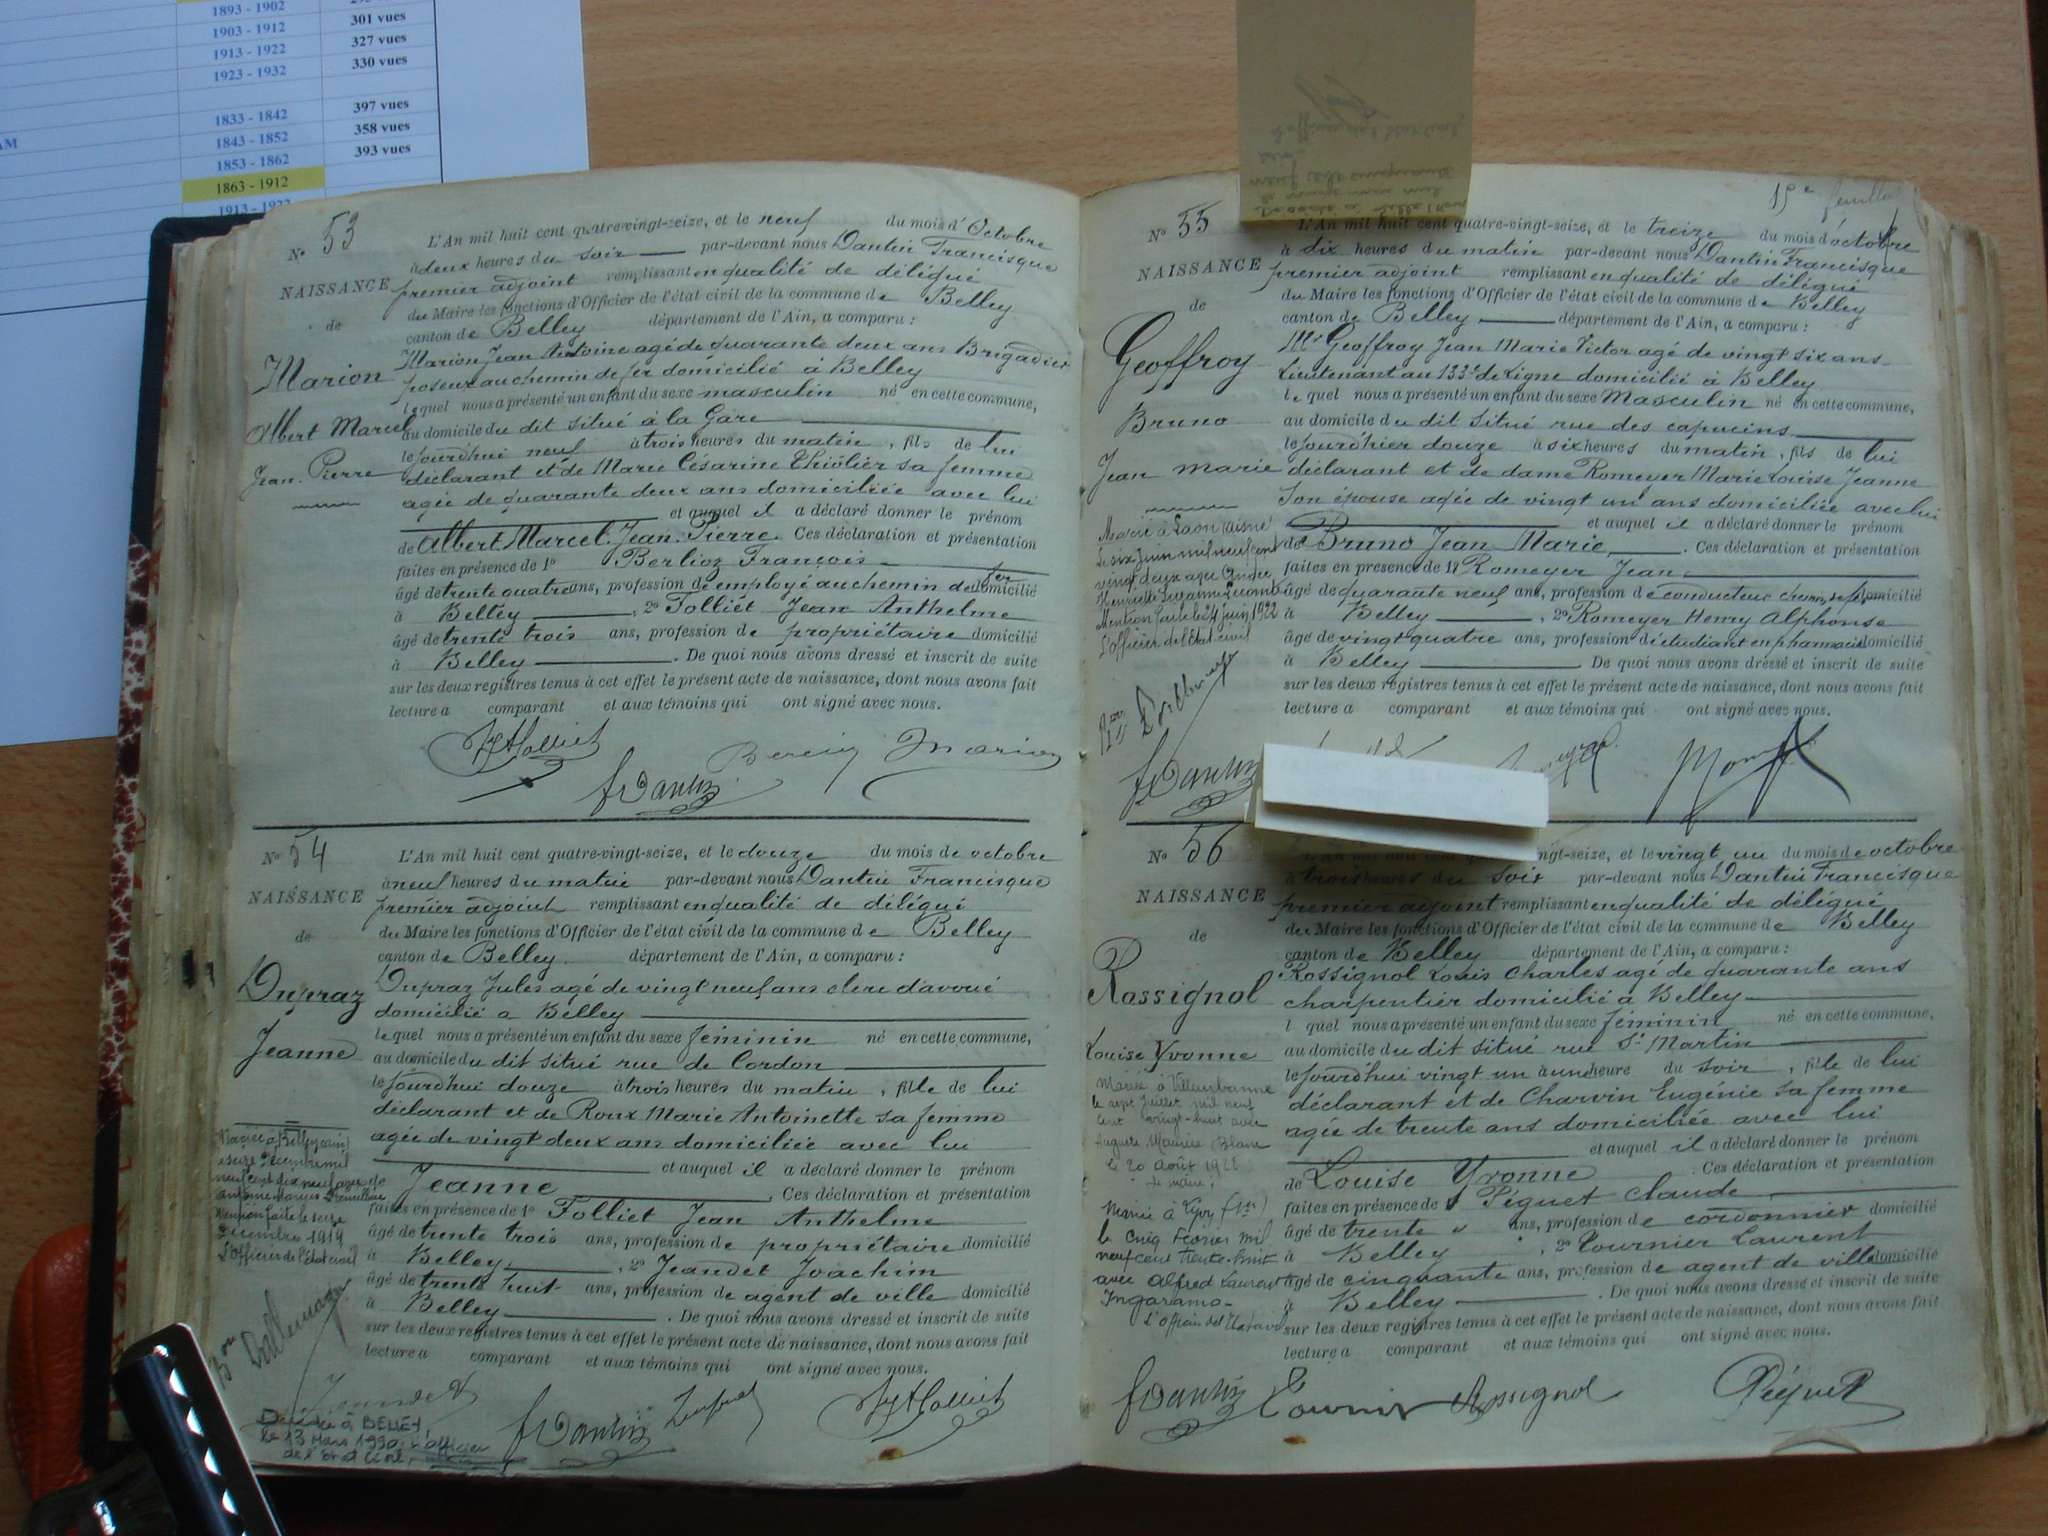 1893 - 1902
1903 - 1912 301 vues
1913 - 1922 327 vues
1923 - 1932 330 vues
1833 - 1842 397 vues
1843 - 1852 358 vues
1853 - 1862 393 vues
1863 - 1912
1913 - 1922
AM
N° 53
NAISSANCE
de
Marion
Albert Marcel
Jean. Pierre
L'An mil huit cent quatre-vingt-seize, et le neuf du mois d'Octobre
à deux heures du soir par-devant nous Dantin Francisque
premier adjoint remplissant en qualité de délégué
du Maire les fonctions d'Officier de l'état civil de la commune de Belley
canton de Belley département de l'Ain, a comparu :
Marion Jean Antoine agé de quarante deux ans Brigadier
poseur au chemin de fer domicilié à Belley
lequel nous a présenté un enfant du sexe masculin né en cette commune,
au domicile du dit situé à la Gare
le jourd'hui neuf à trois heures du matin, fils de lui
déclarant et de Marie Césarine Thiólier sa femme
agée de quarante deux ans domiciliée avec lui
et auquel il a déclaré donner le prénom
de Albert Marcel. Jean. Pierre. Ces déclaration et présentation
faites en présence de 1° Berlioz François
âgé de trente quatre ans, profession de employé au chemin de fer domicilié
à Belley, 2° Folliet Jean Anthelme
âgé de trente trois ans, profession de propriétaire domicilié
à Belley. De quoi nous avons dressé et inscrit de suite
sur les deux registres tenus à cet effet le présent acte de naissance, dont nous avons fait
lecture a comparant et aux témoins qui ont signé avec nous.
Marion
f Dantin
N° 54
NAISSANCE
de
Dupraz
Jeanne
L'An mil huit cent quatre-vingt-seize, et le douze du mois de octobre
à neuf heures du matin par-devant nous Dantin Francisque
premier adjoint remplissant en qualité de délégué
du Maire les fonctions d'Officier de l'état civil de la commune de Belley
canton de Belley département de l'Ain, a comparu :
Dupraz Jules agé de vingt neuf ans clerc d'avoué
domicilié a Belley
lequel nous a présenté un enfant du sexe féminin né en cette commune,
au domicile du dit situé rue de Cordon
le jourd'hui douze à trois heures du matin, fille de lui
déclarant et de Roux Marie Antoinette sa femme
agée de vingt deux ans domiciliée avec lui
et auquel il a déclaré donner le prénom
de Jeanne, Ces déclaration et présentation
faites en présence de 1° Folliet Jean Anthelme
âgé de trente trois ans, profession de propriétaire domicilié
à Belley, 2° Jeandet Joachim
âgé de trente huit ans, profession de agent de ville domicilié
à Belley. De quoi nous avons dressé et inscrit de suite
sur les deux registres tenus à cet effet le présent acte de naissance, dont nous avons fait
lecture a comparant et aux témoins qui ont signé avec nous.
Mention faite le seize
Décembre 1919
L'Officier de l'état civil
Jeandet
f Dantin
Décédée à BELLEY,
le 13 Mars 1990. L'officier
de l'état civil,
15e feuillet
N° 55
NAISSANCE
de
Geoffroy
Bruno
Jean marie
L'An mil huit cent quatre-vingt-seize, et le treize du mois d'octobre
à dix heures du matin par-devant nous Dantin Francisque
premier adjoint remplissant en qualité de délégué
du Maire les fonctions d'Officier de l'état civil de la commune de Belley
canton de Belley département de l'Ain, a comparu :
Mr Geoffroy Jean Marie Victor agé de vingt six ans
Lieutenant au 133e de Ligne domicilié à Belley
lequel nous a présenté un enfant du sexe Masculin né en cette commune,
au domicile du dit situé rue des capucins
le jourd'hier douze à six heures du matin, fils de lui
déclarant et de dame Romeyer Marie Louise Jeanne
Son épouse agée de vingt un ans domiciliée avec lui
et auquel il a déclaré donner le prénom
de Bruno Jean Marie. Ces déclaration et présentation
faites en présence de 1° Romeyer Jean
âgé de quarante neuf ans, profession de conducteur chemin de fer domicilié
à Belley, 2° Romeyer Henry Alphonse
âgé de vingt quatre ans, profession d'étudiant en pharmacie domicilié
à Belley. De quoi nous avons dressé et inscrit de suite
sur les deux registres tenus à cet effet le présent acte de naissance, dont nous avons fait
lecture a comparant et aux témoins qui ont signé avec nous.
Marié à Laon (aisne)
le six Juin mil neuf cent
vingt deux avec
Mention faite le 24 juin 1922
L'officier de l'état civil
f Dantin
N° 56
NAISSANCE
de
Rossignol
Louise Yvonne
ngt-seize, et le vingt un du mois de octobre
à trois heures du soir par-devant nous Dantin Francisque
premier adjoint remplissant en qualité de délégué
du Maire les fonctions d'Officier de l'état civil de la commune de Belley
canton de Belley département de l'Ain, a comparu :
Rossignol Louis Charles agé de quarante ans
charpentier domicilié à Belley
l quel nous a présenté un enfant du sexe féminin né en cette commune,
au domicile du dit situé rue St Martin
le jourd'hui vingt un à une heure du soir, fille de lui
déclarant et de Charvin Eugénie sa femme
agée de trente ans domiciliée avec lui
et auquel il a déclaré donner le prénom
de Louise Yvonne. Ces déclaration et présentation
faites en présence de 1 Péguet Claude
âgé de trente ans, profession de cordonnier domicilié
à Belley, 2° Tournier Laurent
âgé de cinquante ans, profession de agent de ville domicilié
à Belley. De quoi nous avons dressé et inscrit de suite
sur les deux registres tenus à cet effet le présent acte de naissance, dont nous avons fait
lecture a comparant et aux témoins qui ont signé avec nous.
Mariée à Villeurbanne
le sept Juillet mil neuf
cent vingt-huit avec
Auguste Maurice Blanc
le 20 août 1928
Le maire,
Mariée à Lyon (1er)
le cinq Février mil
neuf cent trente-huit
avec Alfred Laurent
Ingaramo-
L'Officier de l'Etat civil
f Dantin Tournier Rossignol Péguet